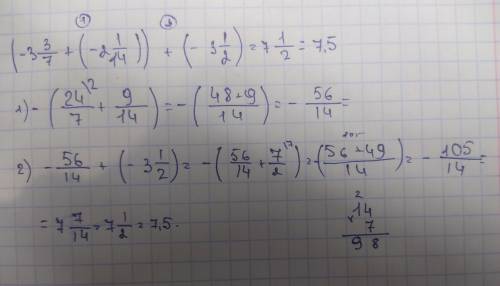 ① ②
(-3 3/7 + (-2 1/14)) + (-3 1/2) = 7 1/2 = 7,5
1) -(24\2/7 + 9/14) = -(48+9/14) = - 56/14 =
2) - 56/14 + (-3 1/2) = -(56/14 + 7\7/2) = -(56+49/14) = - 105/14 =
= 7 7/14 = 7 1/2 = 7,5.
2
14
× 7
98